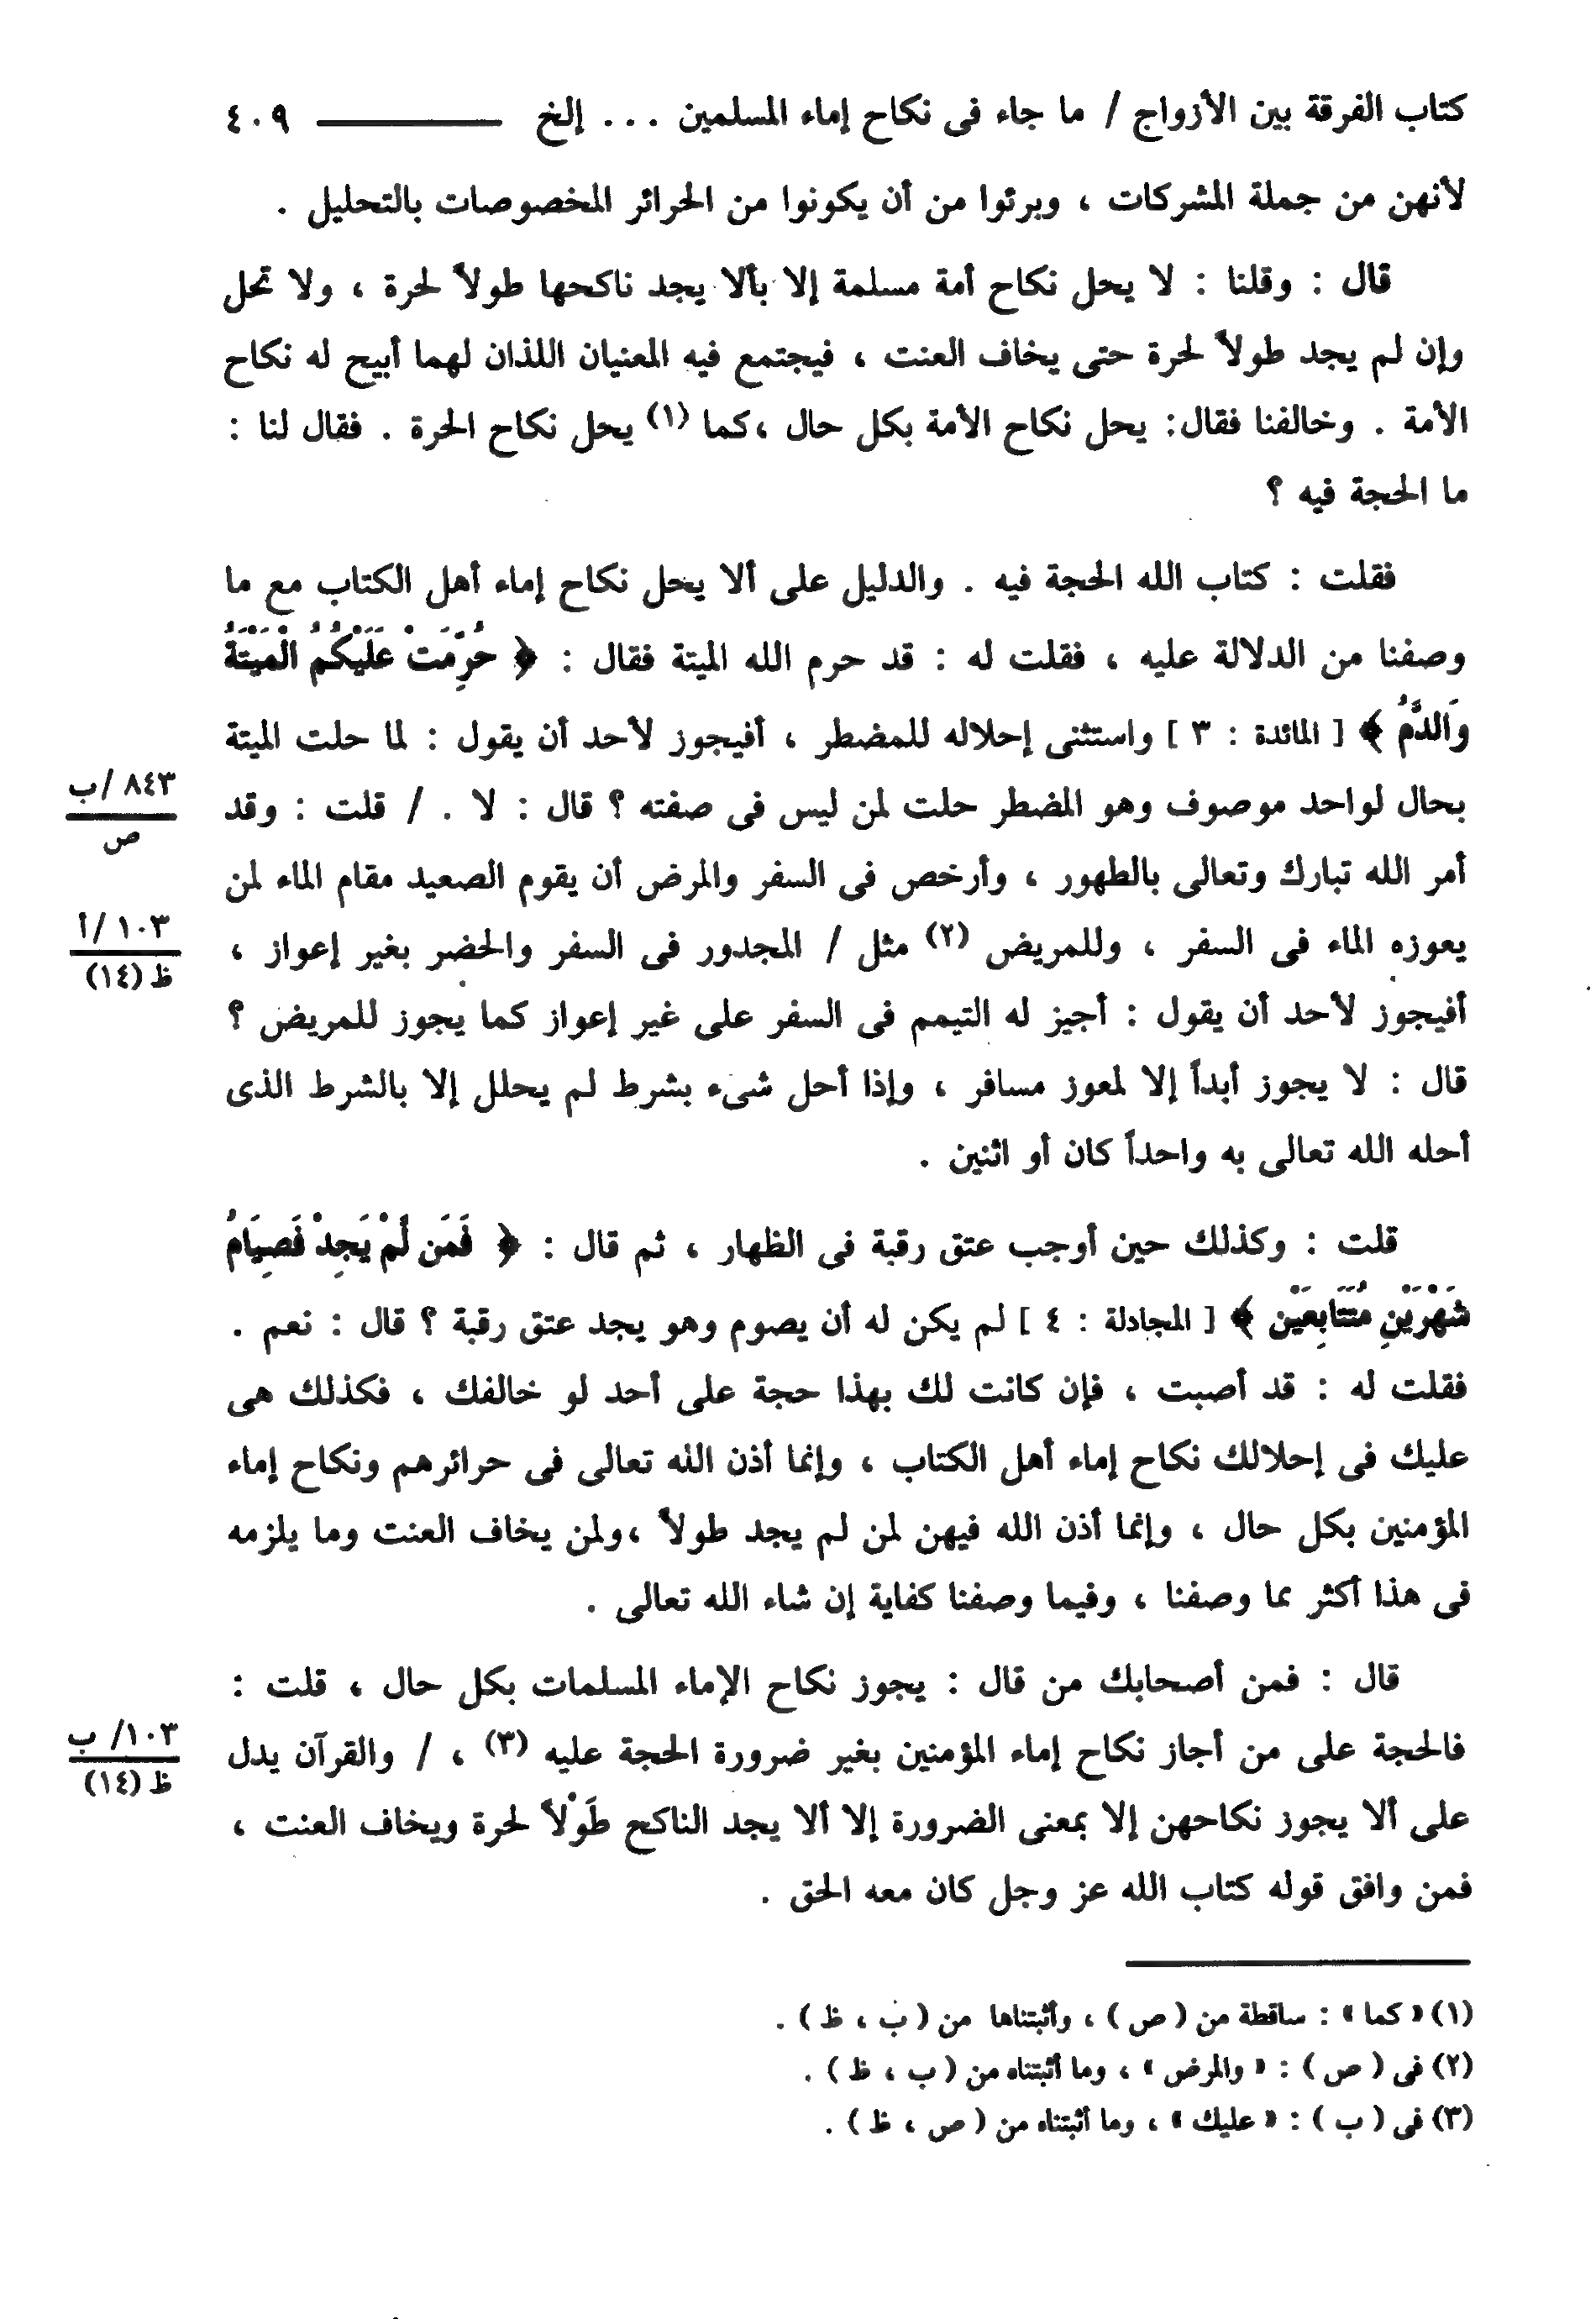 كتاب الفرقة بين الأزواج / ما جاء فى نكاح إماء المسلمين . . . إلخ ـــــــــ ٤٠٩
لأنهن من جملة المشركات ، وبرئوا من أن يكونوا من الحرائر المخصوصات بالتحليل .
قال : وقلنا : لا يحل نكاح أمة مسلمة إلا بألا يجد ناكحها طولاً لحرة ، ولا تحل
وإن لم يجد طولاً لحرة حتى يخاف العنت ، فيجتمع فيه المعنيان اللذان لهما أبيح له نكاح
الأمة . وخالفنا فقال: يحل نكاح الأمة بكل حال ،كما (١) يحل نكاح الحرة . فقال لنا :
ما الحجة فيه ؟
فقلت : كتاب الله الحجة فيه . والدليل على ألا يحل نكاح إماء أهل الكتاب مع ما
وصفنا من الدلالة عليه ، فقلت له : قد حرم الله الميتة فقال : ﴿ حُرِّمَتْ عَلَيْكُمُ الْمَيْتَةُ
وَالدَّمُ ﴾ [ المائدة : ٣ ] واستثنى إحلاله للمضطر ، أفيجوز لأحد أن يقول : لما حلت الميتة
بحال لواحد موصوف وهو المضطر حلت لمن ليس فى صفته ؟ قال : لا . / قلت : وقد
٨٤٣ /ب
ص
أمر الله تبارك وتعالى بالطهور ، وأرخص فى السفر والمرض أن يقوم الصعيد مقام الماء لمن
يعوزه الماء فى السفر ، وللمريض (٢) مثل / المجدور فى السفر والحضر بغير إعواز ،
١٠٣ /أ
ظ (١٤)
أفيجوز لأحد أن يقول : أجيز له التيمم فى السفر على غير إعواز كما يجوز للمريض ؟
قال : لا يجوز أبداً إلا لمعوز مسافر ، وإذا أحل شىء بشرط لم يحلل إلا بالشرط الذى
أحله الله تعالى به واحداً كان أو اثنين .
قلت : وكذلك حين أوجب عتق رقبة فى الظهار ، ثم قال : ﴿ فَمَن لَّمْ يَجِدْ فَصِيَامُ
شَهْرَيْنِ مُتَتَابِعَيْنِ ﴾ [ المجادلة : ٤ ] لم يكن له أن يصوم وهو يجد عتق رقبة ؟ قال : نعم .
فقلت له : قد أصبت ، فإن كانت لك بهذا حجة على أحد لو خالفك ، فكذلك هى
عليك فى إحلالك نكاح إماء أهل الكتاب ، وإنما أذن الله تعالى فى حرائرهم ونكاح إماء
المؤمنين بكل حال ، وإنما أذن الله فيهن لمن لم يجد طولاً ،ولمن يخاف العنت وما يلزمه
فى هذا أكثر مما وصفنا ، وفيما وصفنا كفاية إن شاء الله تعالى .
قال : فمن أصحابك من قال : يجوز نكاح الإماء المسلمات بكل حال ، قلت :
فالحجة على من أجاز نكاح إماء المؤمنين بغير ضرورة الحجة عليه (٣) ، / والقرآن يدل
١٠٣/ ب
ظ (١٤)
على ألا يجوز نكاحهن إلا بمعنى الضرورة إلا ألا يجد الناكح طَوْلاً لحرة ويخاف العنت ،
فمن وافق قوله كتاب الله عز وجل كان معه الحق .
(١) « كما » : ساقطة من ( ص ) ، وأثبتناها من ( ب ، ظ ) .
(٢) فى ( ص ) : « والمرض » ، وما أثبتناه من ( ب ، ظ ) .
(٣) فى ( ب ) : « عليك » ، وما أثبتناه من ( ص ، ظ ) .